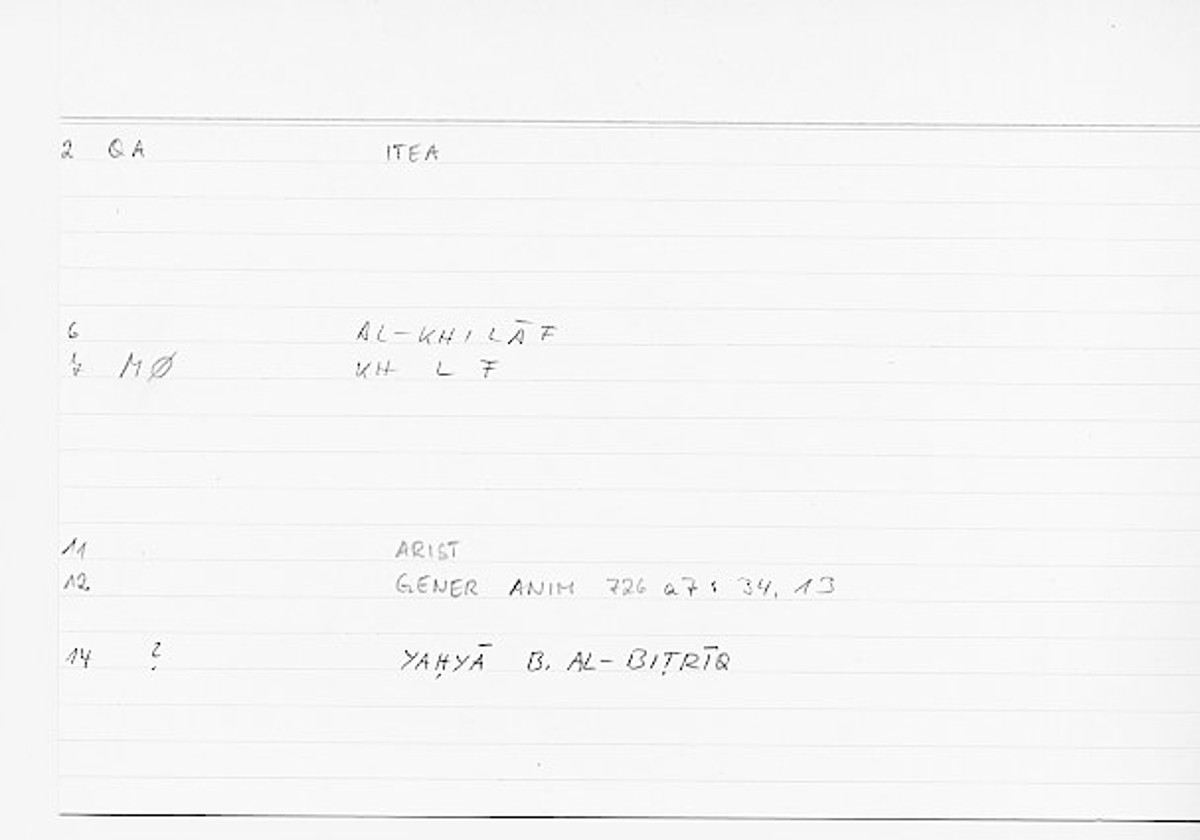 2 QA ITEA
6 AL-KHILĀF
7 MØ KH L F
11 ARIST
12 GENER ANIM 726 a7 : 34, 13
14 ? YAḤYĀ B. AL-BIṬRĪQ